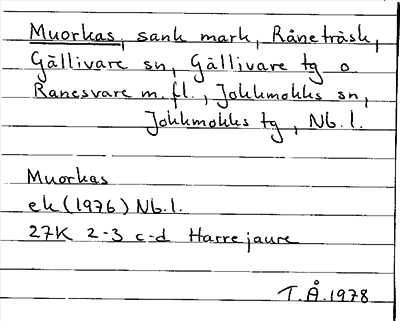 Muorkas, sank mark, Råneträsk,
Gällivare sn, Gällivare tg o
Ranesvare m. fl., Jokkmokks sn,
Jokkmokks tg, Nb. l.
Muorkas
ek (1976) Nb. l.
27K 2-3 c-d Harrejaure
T.Å. 1978